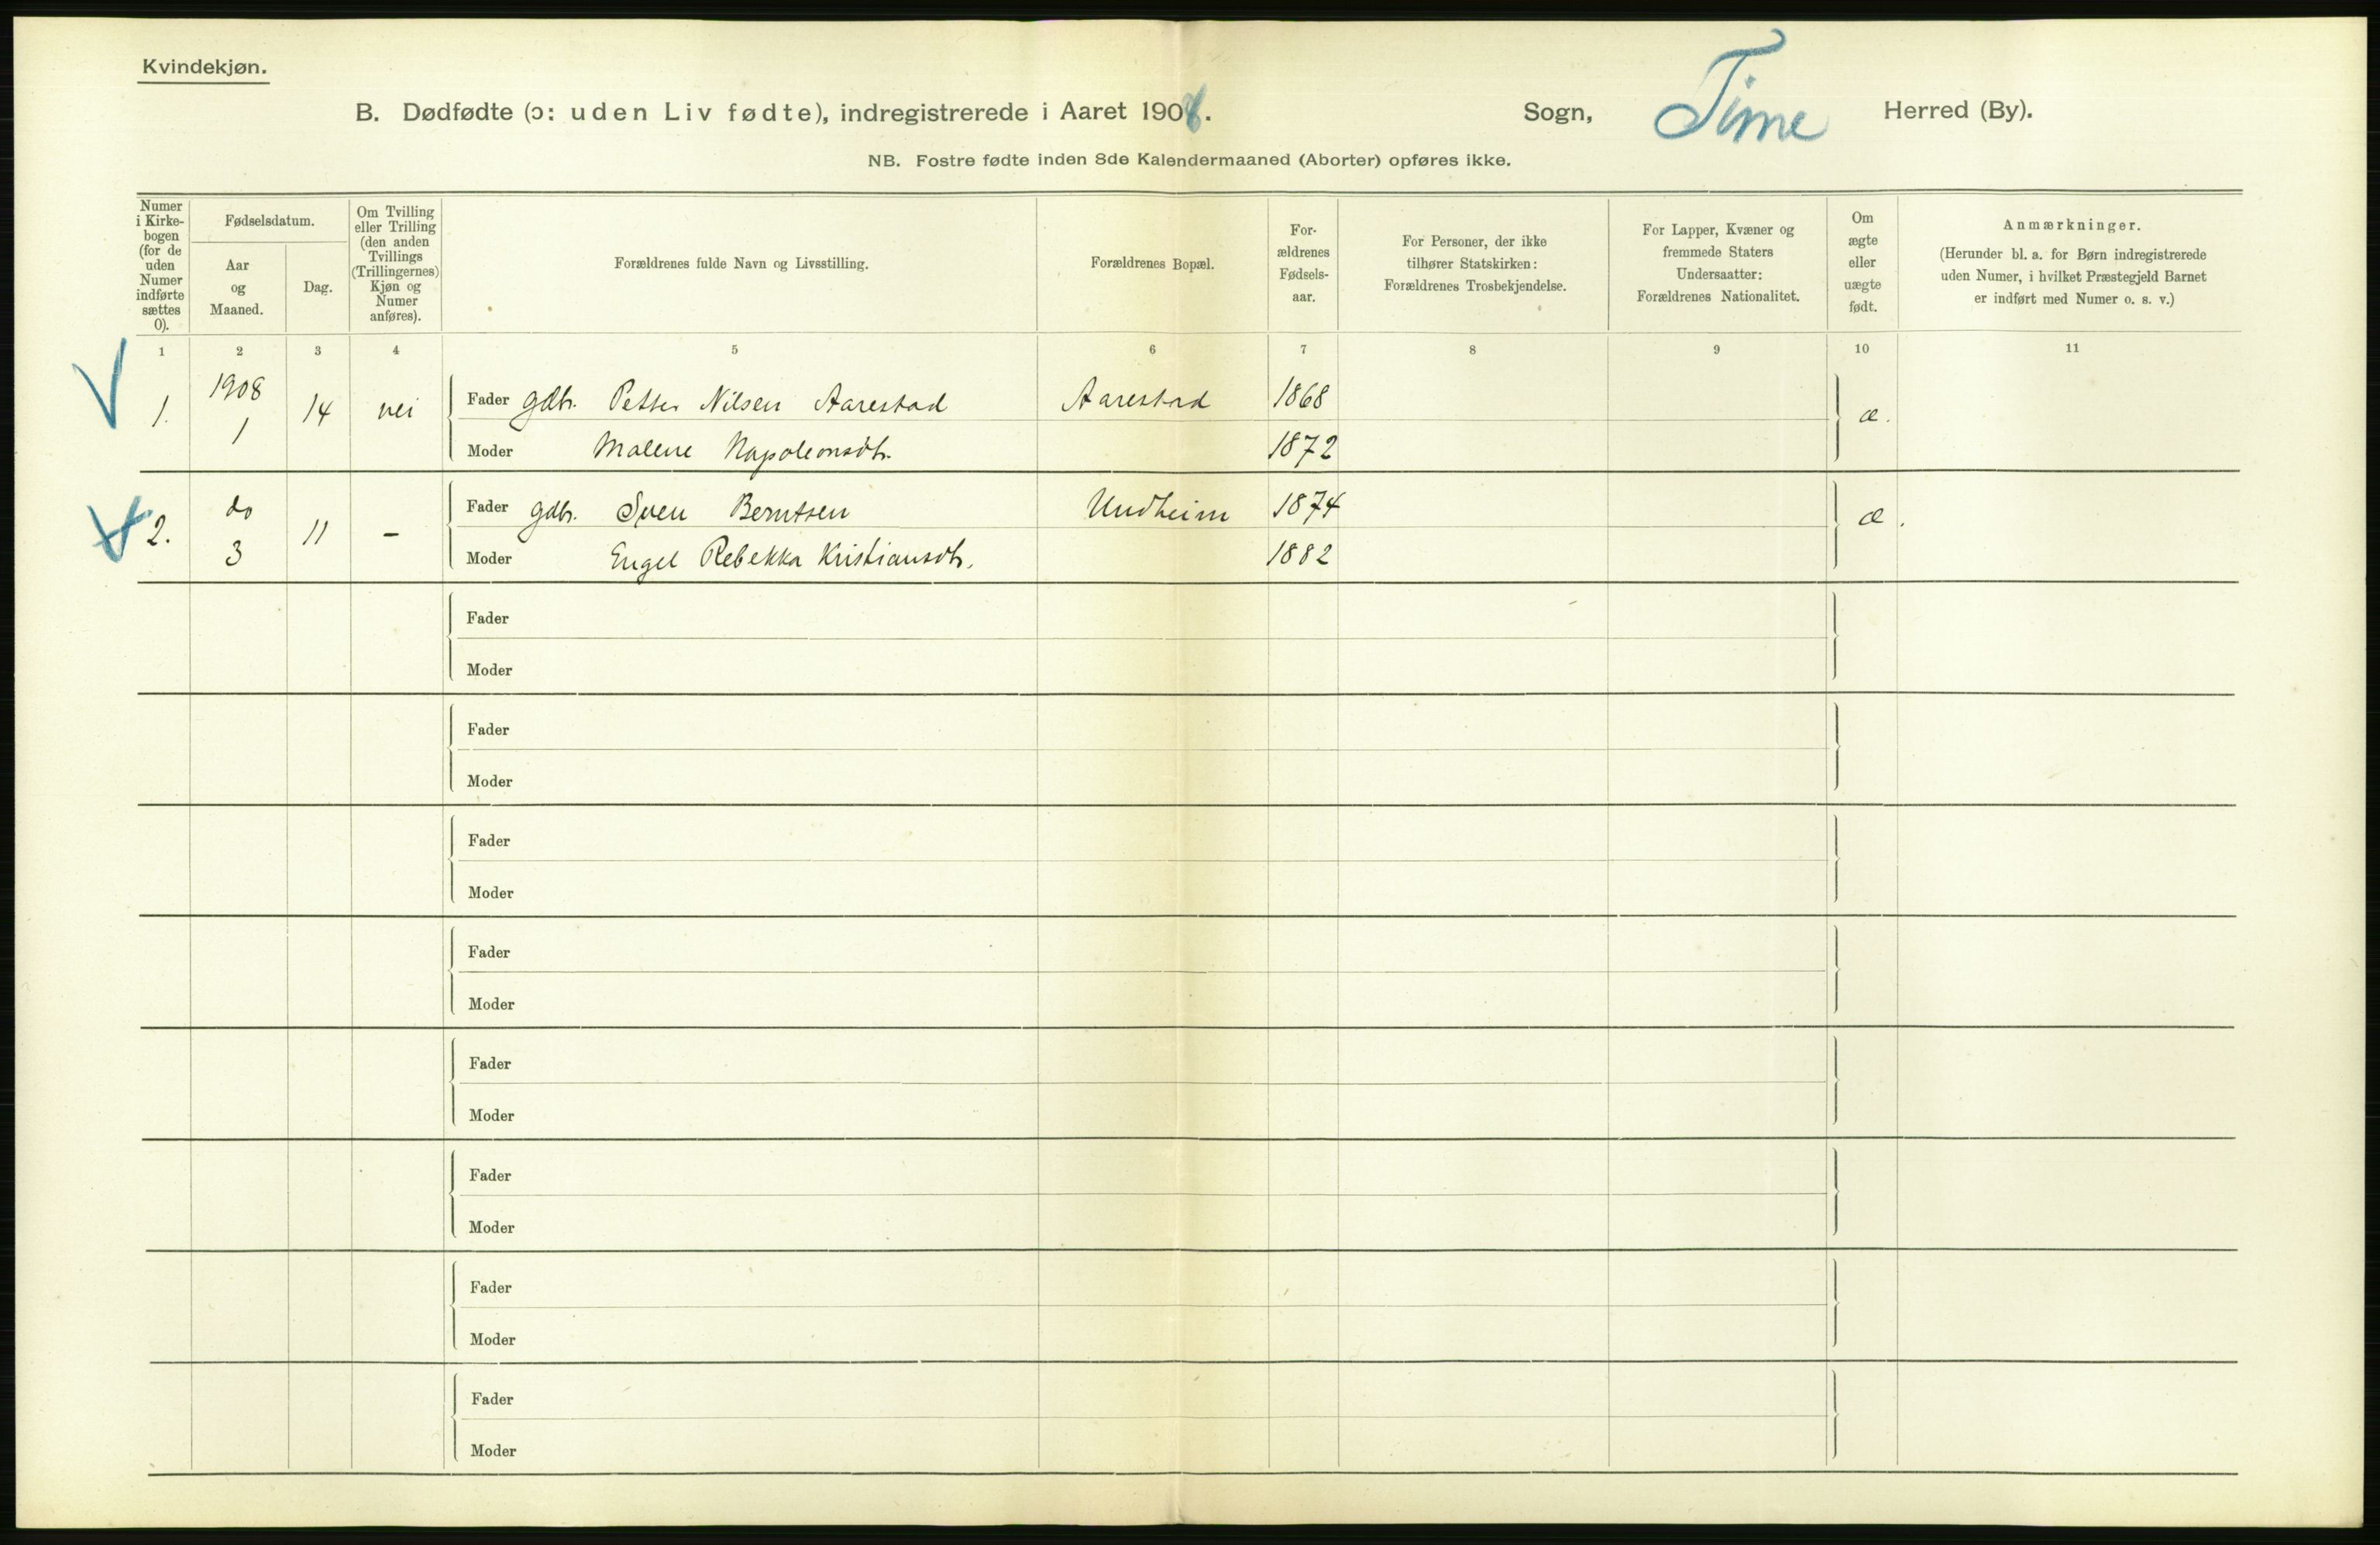 Kvindekjøn.
B. Dødfødte (ɔ: uden Liv fødte), indregistrerede i Aaret 1908. Sogn, Time Herred (By).
NB. Fostre fødte inden 8de Kalendermaaned (Aborter) opføres ikke.
Numer i Kirkebogen (for de uden Numer indførte sættes 0).
Fødselsdatum.
Aar og Maaned.
Dag.
Om Tvilling eller Trilling (den anden Tvillings (Trillingernes) Kjøn og Numer anføres).
Forældrenes fulde Navn og Livsstilling.
Forældrenes Bopæl.
Forældrenes Fødselsaar.
For Personer, der ikke tilhører Statskirken: Forældrenes Trosbekjendelse.
For Lapper, Kvæner og fremmede Staters Undersaatter: Forældrenes Nationalitet.
Om ægte eller uægte født.
Anmærkninger.
(Herunder bl. a. for Børn indregistrerede uden Numer, i hvilket Præstegjeld Barnet er indført med Numer o. s. v.)
1 2 3 4 5 6 7 8 9 10 11
1. 1908 1 14 nei Fader gdbr. Petter Nilsen Aarestad Aarestad 1868 æ.
Moder Malene Napoleonsdtr. 1872
2. do 3 11 – Fader gdbr. Sven Berntsen Undheim 1874 æ.
Moder Engel Rebekka Kristiansdtr. 1882
Fader
Moder
Fader
Moder
Fader
Moder
Fader
Moder
Fader
Moder
Fader
Moder
Fader
Moder
Fader
Moder